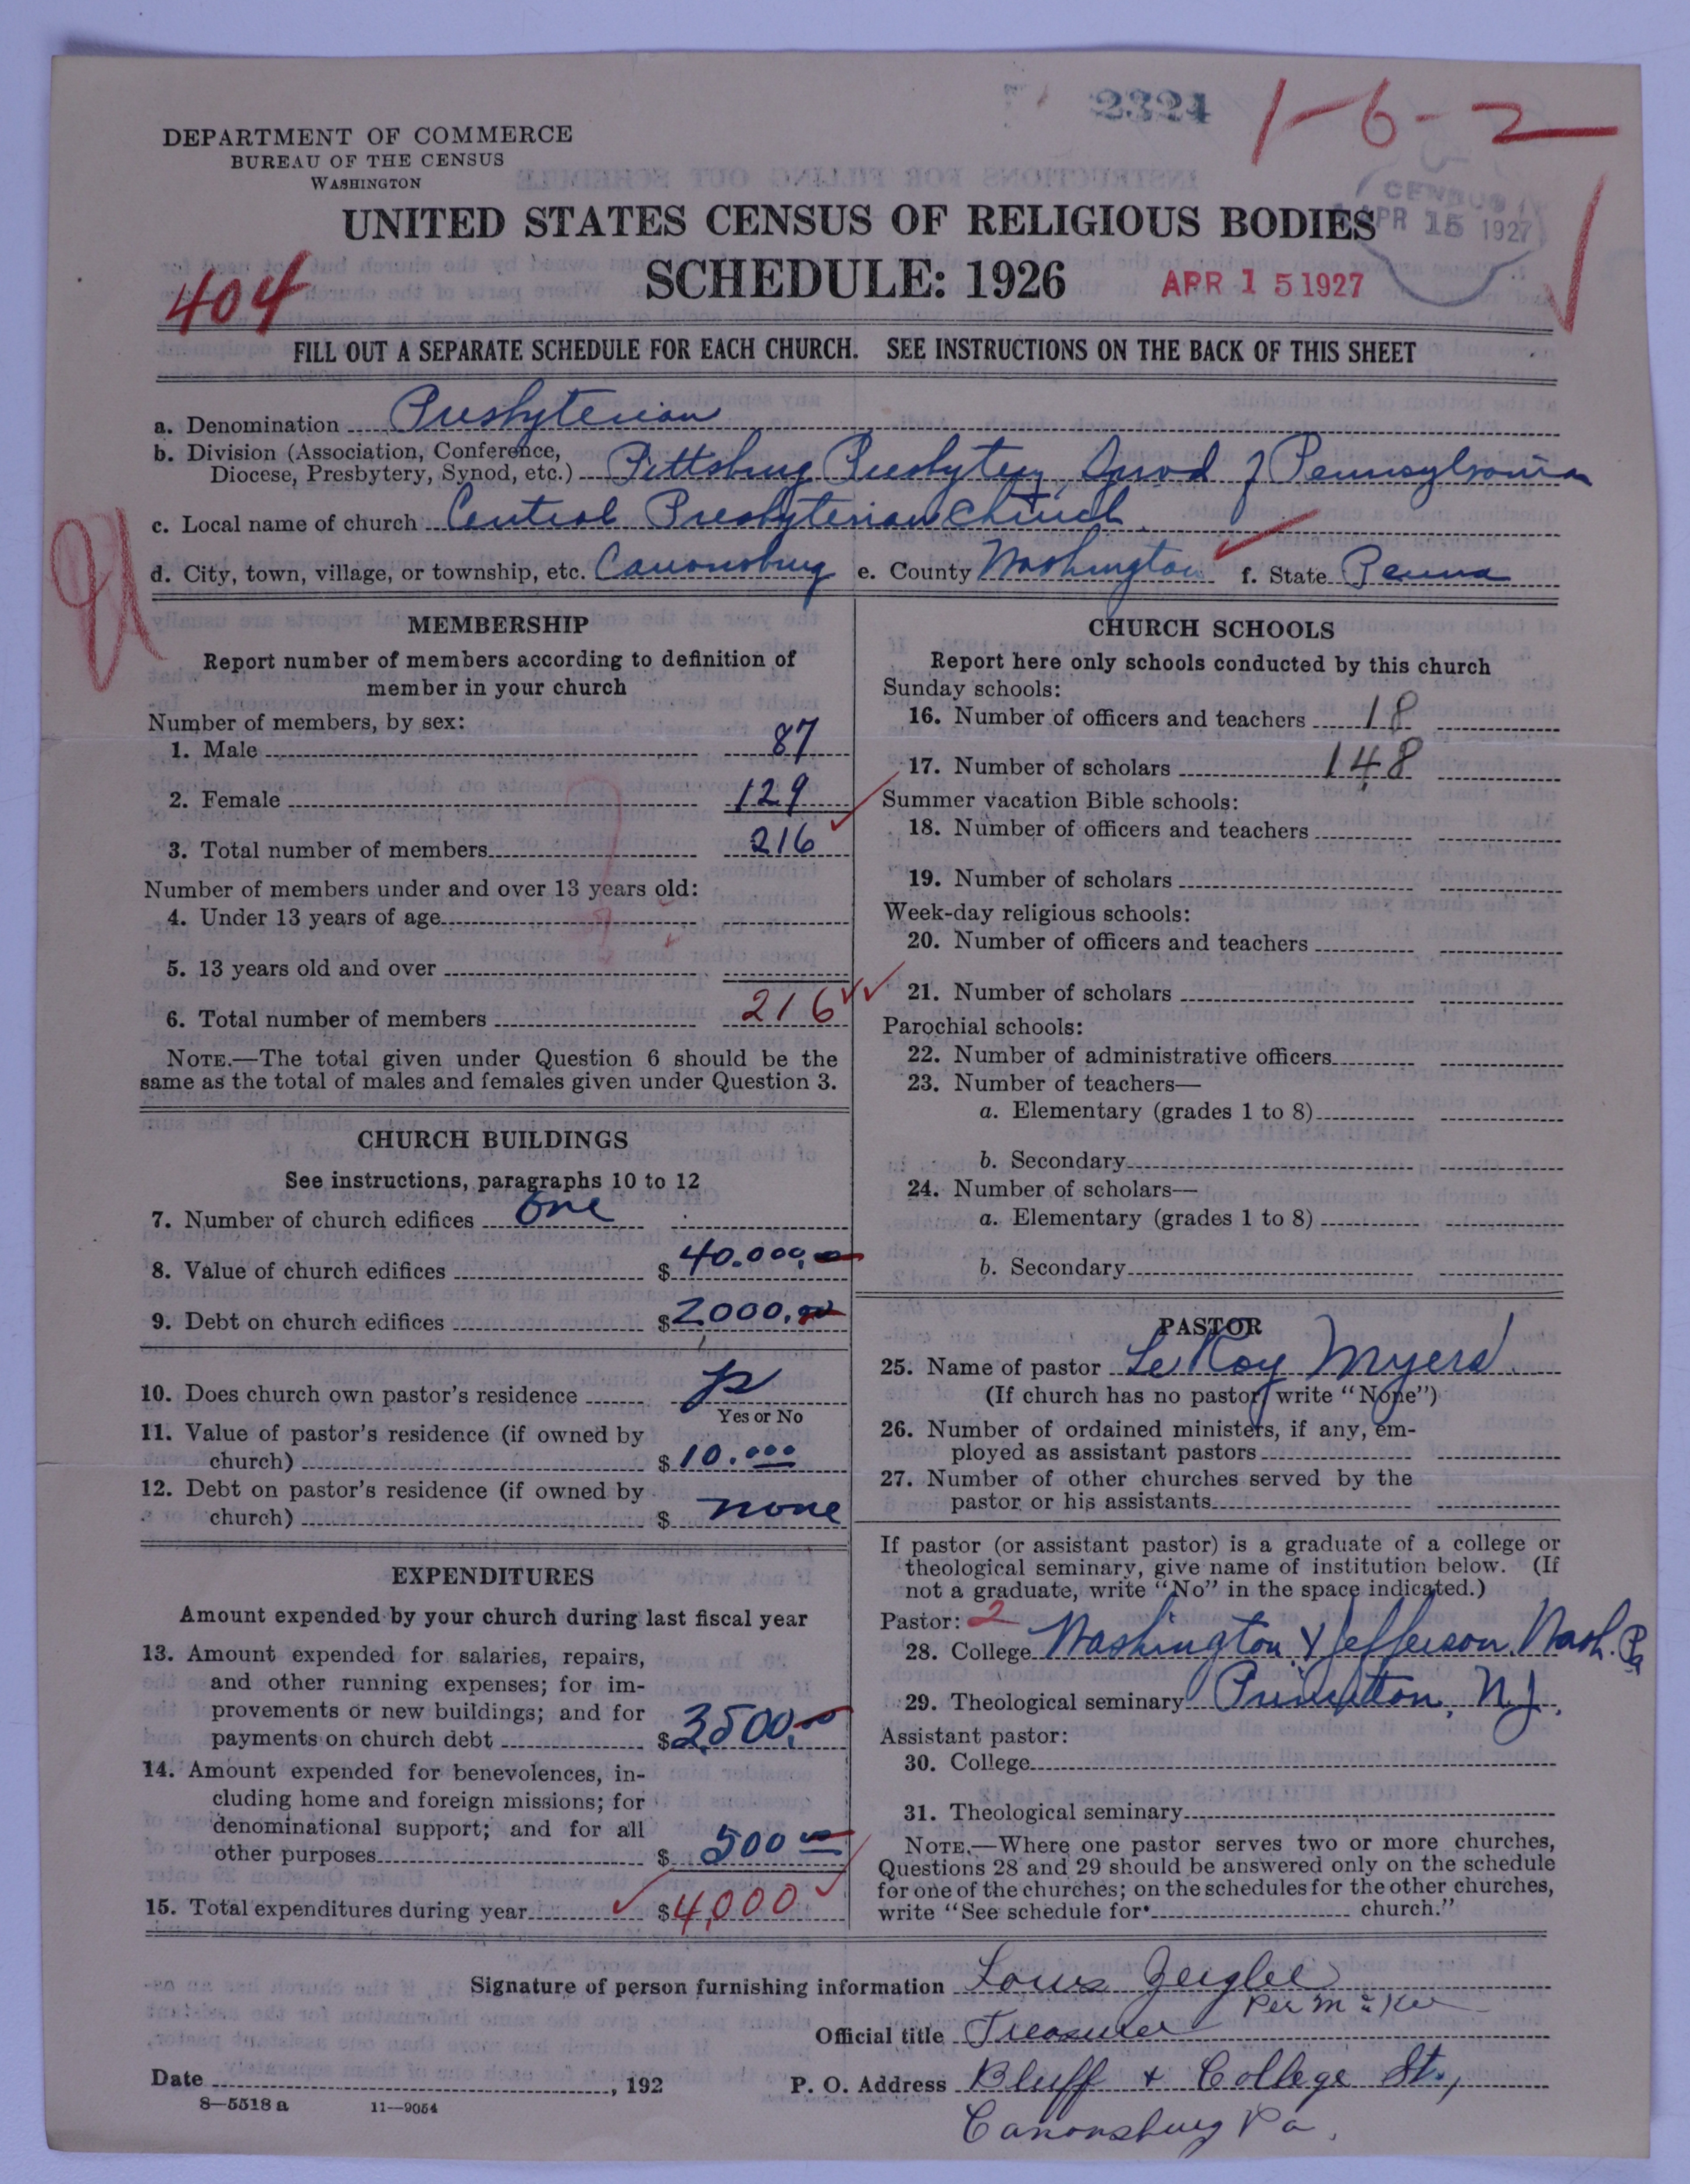 2324
1-6-2
DEPARTMENT OF COMMERCE
BUREAU OF THE CENSUS
WASHINGTON
CENSUS
APR 15 1927
UNITED STATES CENSUS OF RELIGIOUS BODIES
404
SCHEDULE: 1926
APR 15 1927
FILL OUT A SEPARATE SCHEDULE FOR EACH CHURCH. SEE INSTRUCTIONS ON THE BACK OF THIS SHEET
a. Denomination Presbyterian
b. Division (Association, Conference,
Diocese, Presbytery, Synod, etc.) Pittsburg Presbytery, Synod of Pennsylvania
c. Local name of church Central Presbyterian Church
d. City, town, village, or township, etc. Canonsburg e. County Washington f. State Penna
MEMBERSHIP
Report number of members according to definition of
member in your church
Number of members, by sex:
1. Male 87
2. Female 129
3. Total number of members 216
Number of members under and over 13 years old:
4. Under 13 years of age
5. 13 years old and over
6. Total number of members 216
NOTE.—The total given under Question 6 should be the
same as the total of males and females given under Question 3.
CHURCH BUILDINGS
See instructions, paragraphs 10 to 12
7. Number of church edifices one
8. Value of church edifices $40.000.00
9. Debt on church edifices $2000.00
10. Does church own pastor's residence
Yes or No
11. Value of pastor's residence (if owned by
church) $10.000
12. Debt on pastor's residence (if owned by
church) $ none
EXPENDITURES
Amount expended by your church during last fiscal year
13. Amount expended for salaries, repairs,
and other running expenses; for im-
provements or new buildings; and for
payments on church debt $3,500.00
14. Amount expended for benevolences, in-
cluding home and foreign missions; for
denominational support; and for all
other purposes $ 500 00
15. Total expenditures during year $4,000
CHURCH SCHOOLS
Report here only schools conducted by this church
Sunday schools:
16. Number of officers and teachers 18
17. Number of scholars 148
Summer vacation Bible schools:
18. Number of officers and teachers
19. Number of scholars
Week-day religious schools:
20. Number of officers and teachers
21. Number of scholars
Parochial schools:
22. Number of administrative officers
23. Number of teachers—
a. Elementary (grades 1 to 8)
b. Secondary
24. Number of scholars—
a. Elementary (grades 1 to 8)
b. Secondary
PASTOR
25. Name of pastor Le Roy Myers
(If church has no pastor, write "None")
26. Number of ordained ministers, if any, em-
ployed as assistant pastors
27. Number of other churches served by the
pastor or his assistants
If pastor (or assistant pastor) is a graduate of a college or
theological seminary, give name of institution below. (If
not a graduate, write "No" in the space indicated.)
Pastor: 2
28. College Washington & Jefferson, Wash. Pa
29. Theological seminary Princeton, N.J.
Assistant pastor:
30. College
31. Theological seminary
NOTE.—Where one pastor serves two or more churches,
Questions 28 and 29 should be answered only on the schedule
for one of the churches; on the schedules for the other churches,
write "See schedule for church."
Signature of person furnishing information Louis Zeigler
Per
Official title Treasurer
Date , 192
P. O. Address Bluff + College St.,
Canonsburg Pa.
8—5518 a 11—9054